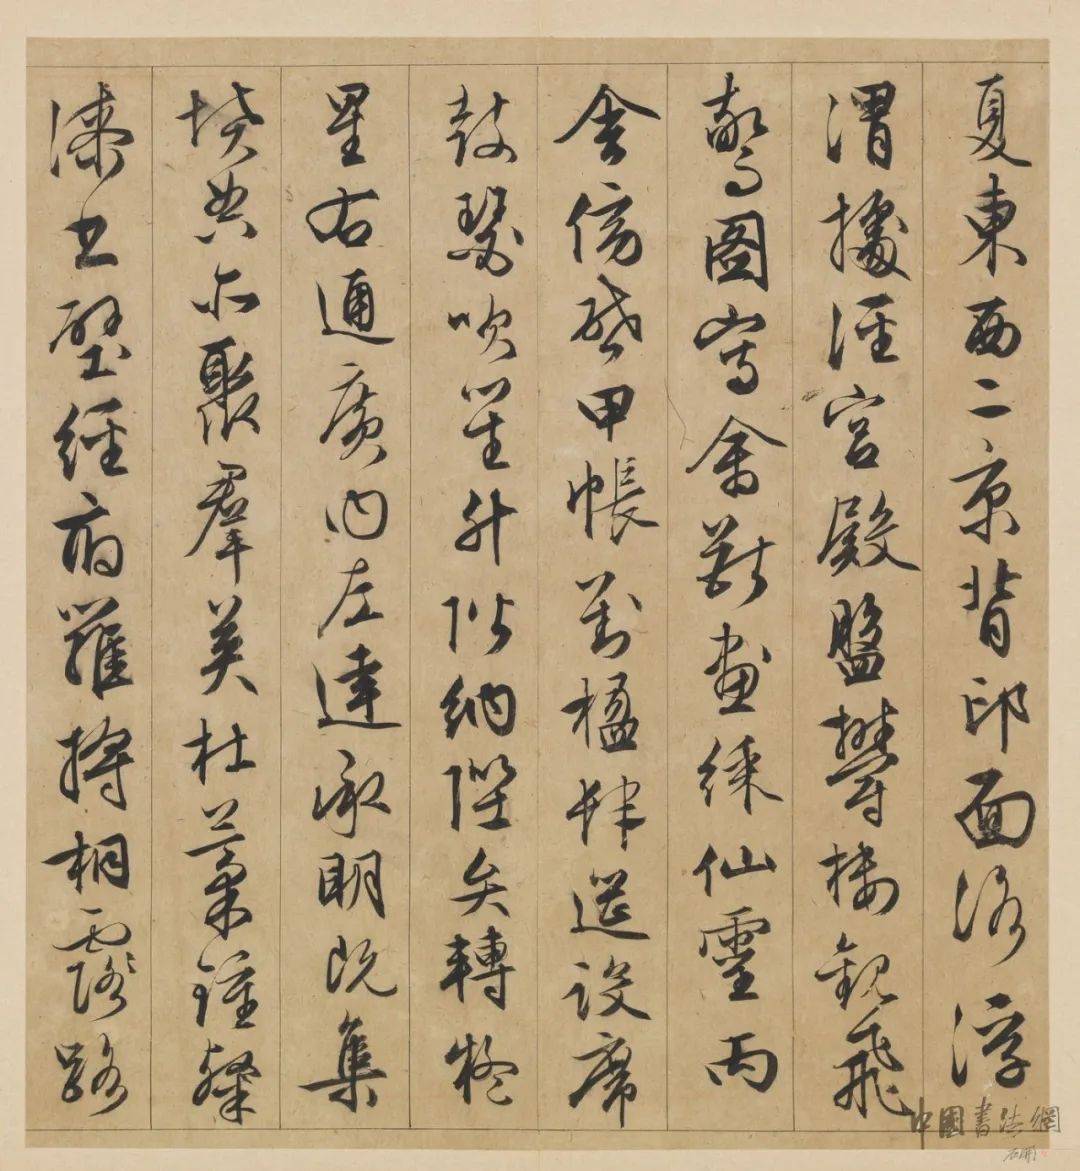 夏東西二京背邙面洛浮
渭據涇宮殿盤鬱樓觀飛
驚圖寫禽獸畫綵仙靈丙
舍傍啓甲帳對楹肆筵設席
鼓瑟吹笙升階納陛弁轉疑
星右通廣內左達承明既集
墳典亦聚羣英杜稾鍾隸
漆書壁經府羅將相露路
中國書法網